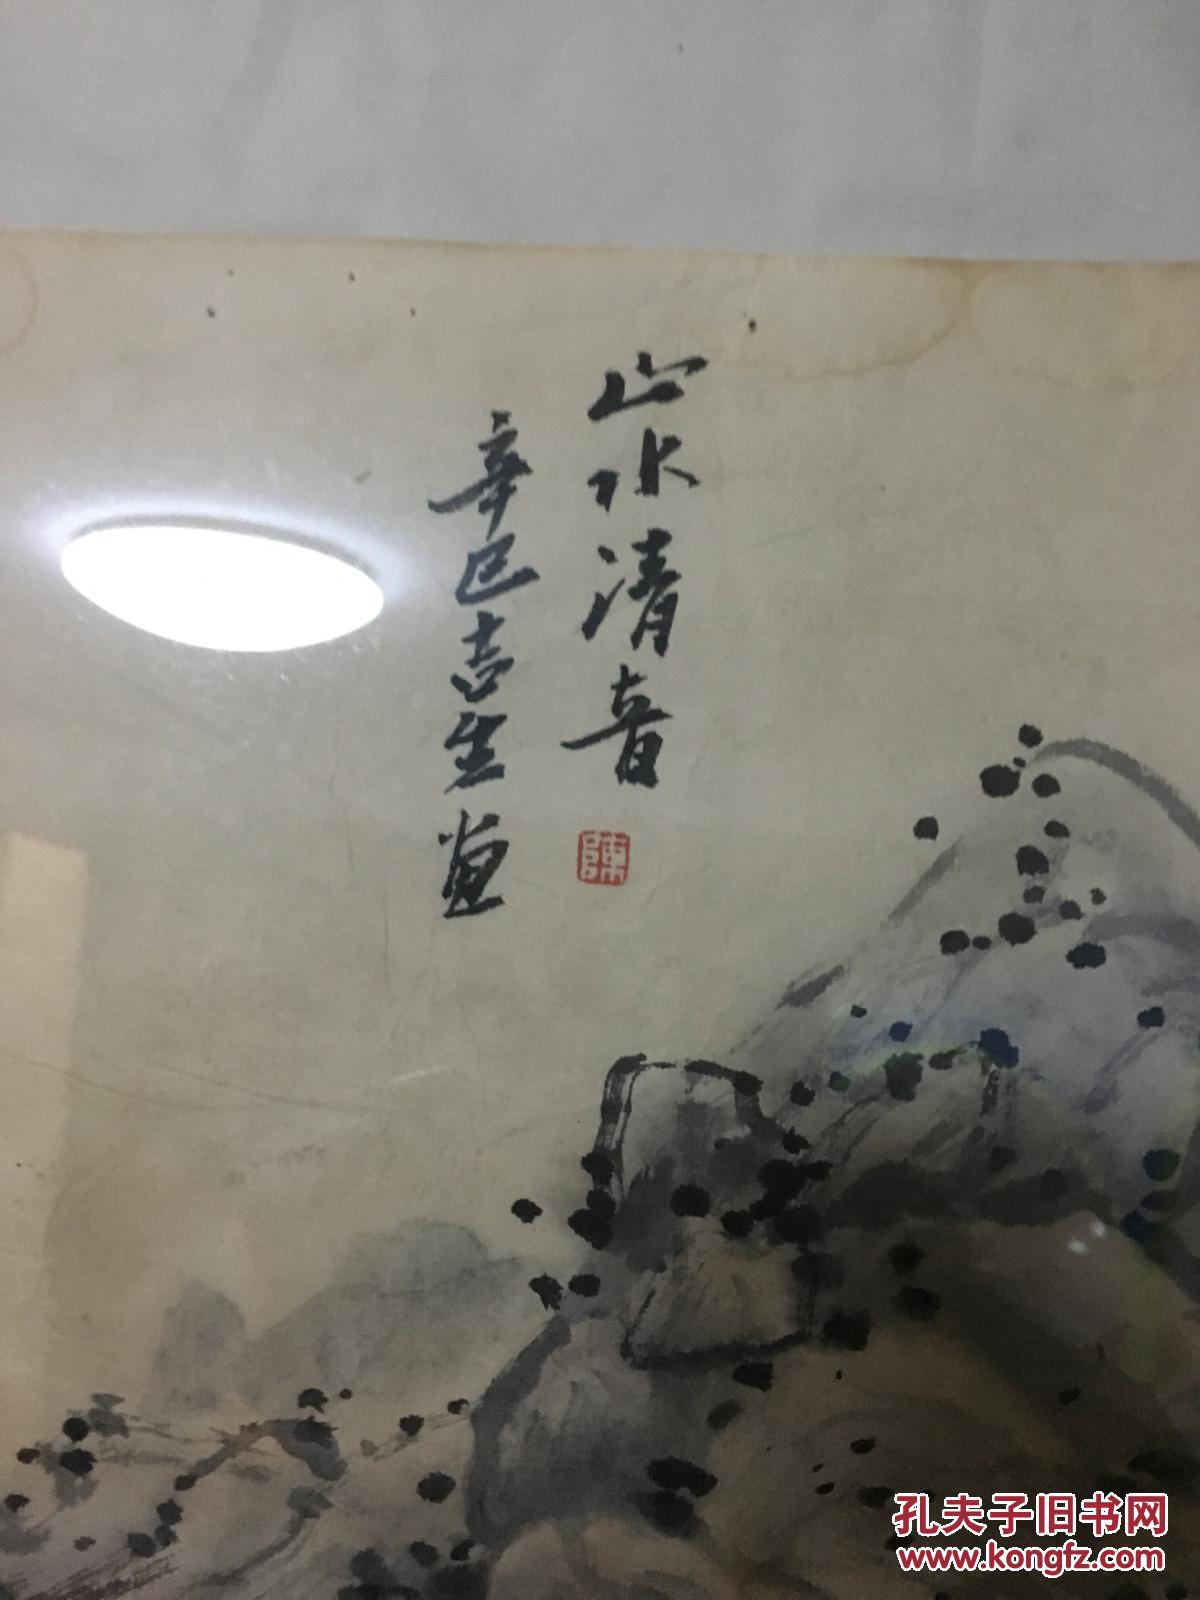 山水清音
辛巳吉生画
陳
孔夫子旧书网
www.kongfz.com